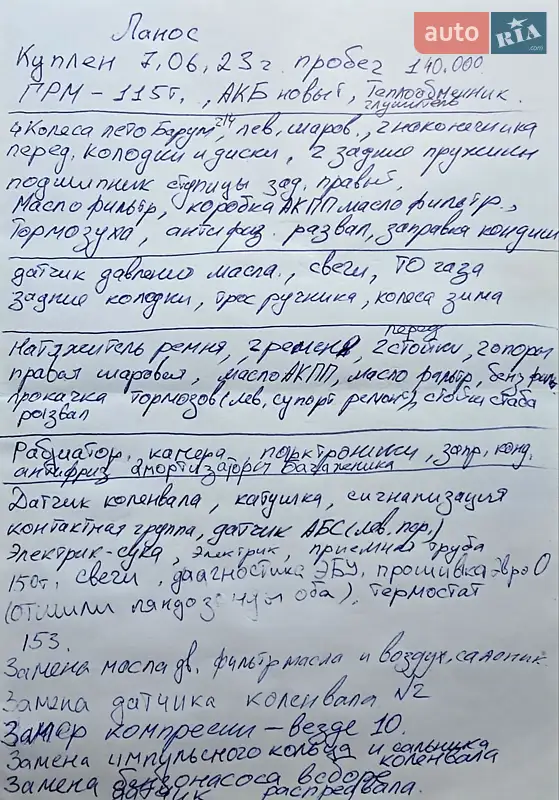 auto RIA.com
Ланос
Куплен 7,06,23г. пробег 140.000.
ГРМ - 115т., АКБ новый, Теплообменник.
глушитель
4 колеса лето Барум r14, лев. шаров., 2 наконечника
перед. колодки и диски, 2 задние пружины
подшипник ступицы зад. правый,
Масло фильтр, коробка АКПП масло фильтр.,
Тормозуха, антифиз. развал, заправка кондиц
датчик давления масла., свечи, ТО газа
задние колодки, трос ручника, колеса зима
Натяжитель ремня, 2 ремени, 2 стойки перед, 2 опоры
правая шаровая, масло АКПП, масло фильтр, бенз фил.
прокачка тормозов (лев, суппорт ремонт), стойки стаба
развал
Радиатор, камера, парктроники, запр. конд.
антифриз амортизаторы багажника
Датчик коленвала, катушка, сигнализация
контактная группа, датчик АБС (лев. пер.)
Электрик-сука, электрик, приемная труба
150т. свечи, диагностика ЭБУ, прошивка Евро 0
(отшили лямдо зонды оба), термостат
153.
Замена масла дв. фильтр масла и воздух, салонник
Замена датчика коленвала №2
Замер компресии - везде 10.
Замена импульсного кольца и сальника
коленвала
Замена бензонасоса в сборе
датчик распредвала.